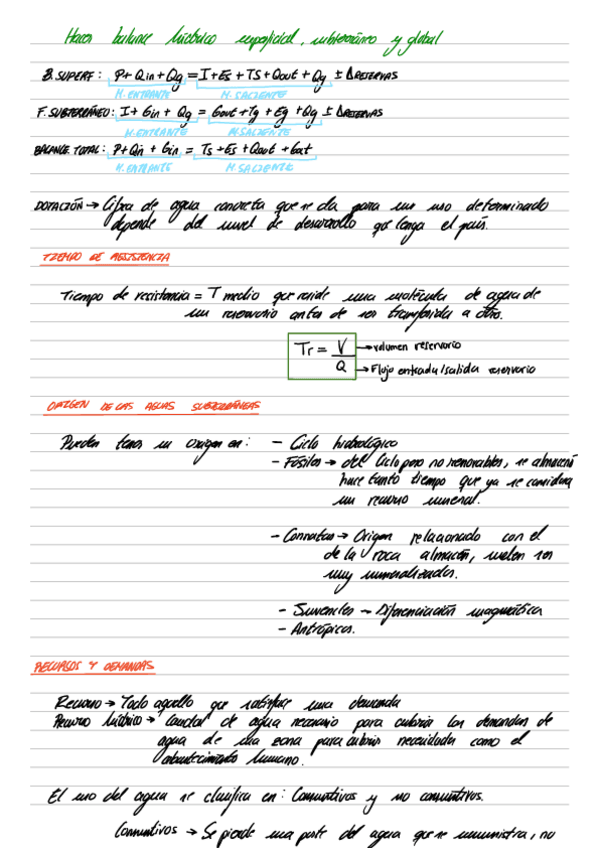 Hacer balance hídrico superficial, subterráneo y global
B. SUPERF: P + Qin + Qg = I + Es + TS + Qout + Qg ± ΔRESERVAS
M. ENTRANTE M. SALIENTE
F. SUBTERRÁNEO: I + Gin + Qg = Gout + Tg + Eg + Qg ± ΔRESERVAS
M. ENTRANTE M. SALIENTE
BALANCE TOTAL: P + Qin + Gin = Ts + Es + Qout + Gout
M. ENTRANTE M. SALIENTE
DOTACIÓN → Cifra de agua concreta que se da para un uso determinado
depende del nivel de desarrollo que tenga el país.
TIEMPO DE RESISTENCIA
Tiempo de resistencia = T medio que reside una molécula de agua de
un reservorio antes de ser transferida a otro.
Tr = V/Q
→ volumen reservorio
→ Flujo entrada/salida reservorio
ORIGEN DE LAS AGUAS SUBTERRÁNEAS
Pueden tener un origen en: - Ciclo hidrológico
- Fósiles → del ciclo pero no renovables, se almacenó
hace tanto tiempo que ya se considera
un recurso mineral.
- Connatas → Origen relacionado con el
de la roca almacén, suelen ser
muy mineralizadas.
- Juveniles → Diferenciación magmática
- Antrópicos.
RECURSOS Y DEMANDAS
Recurso → Todo aquello que satisface una demanda
Recurso hídrico → Caudal de agua necesario para cubrir las demandas de
agua de una zona para cubrir necesidades como el
abastecimiento humano.
El uso del agua se clasifica en: Consuntivos y no consuntivos.
Consuntivos → Se pierde una parte del agua que se suministra, no